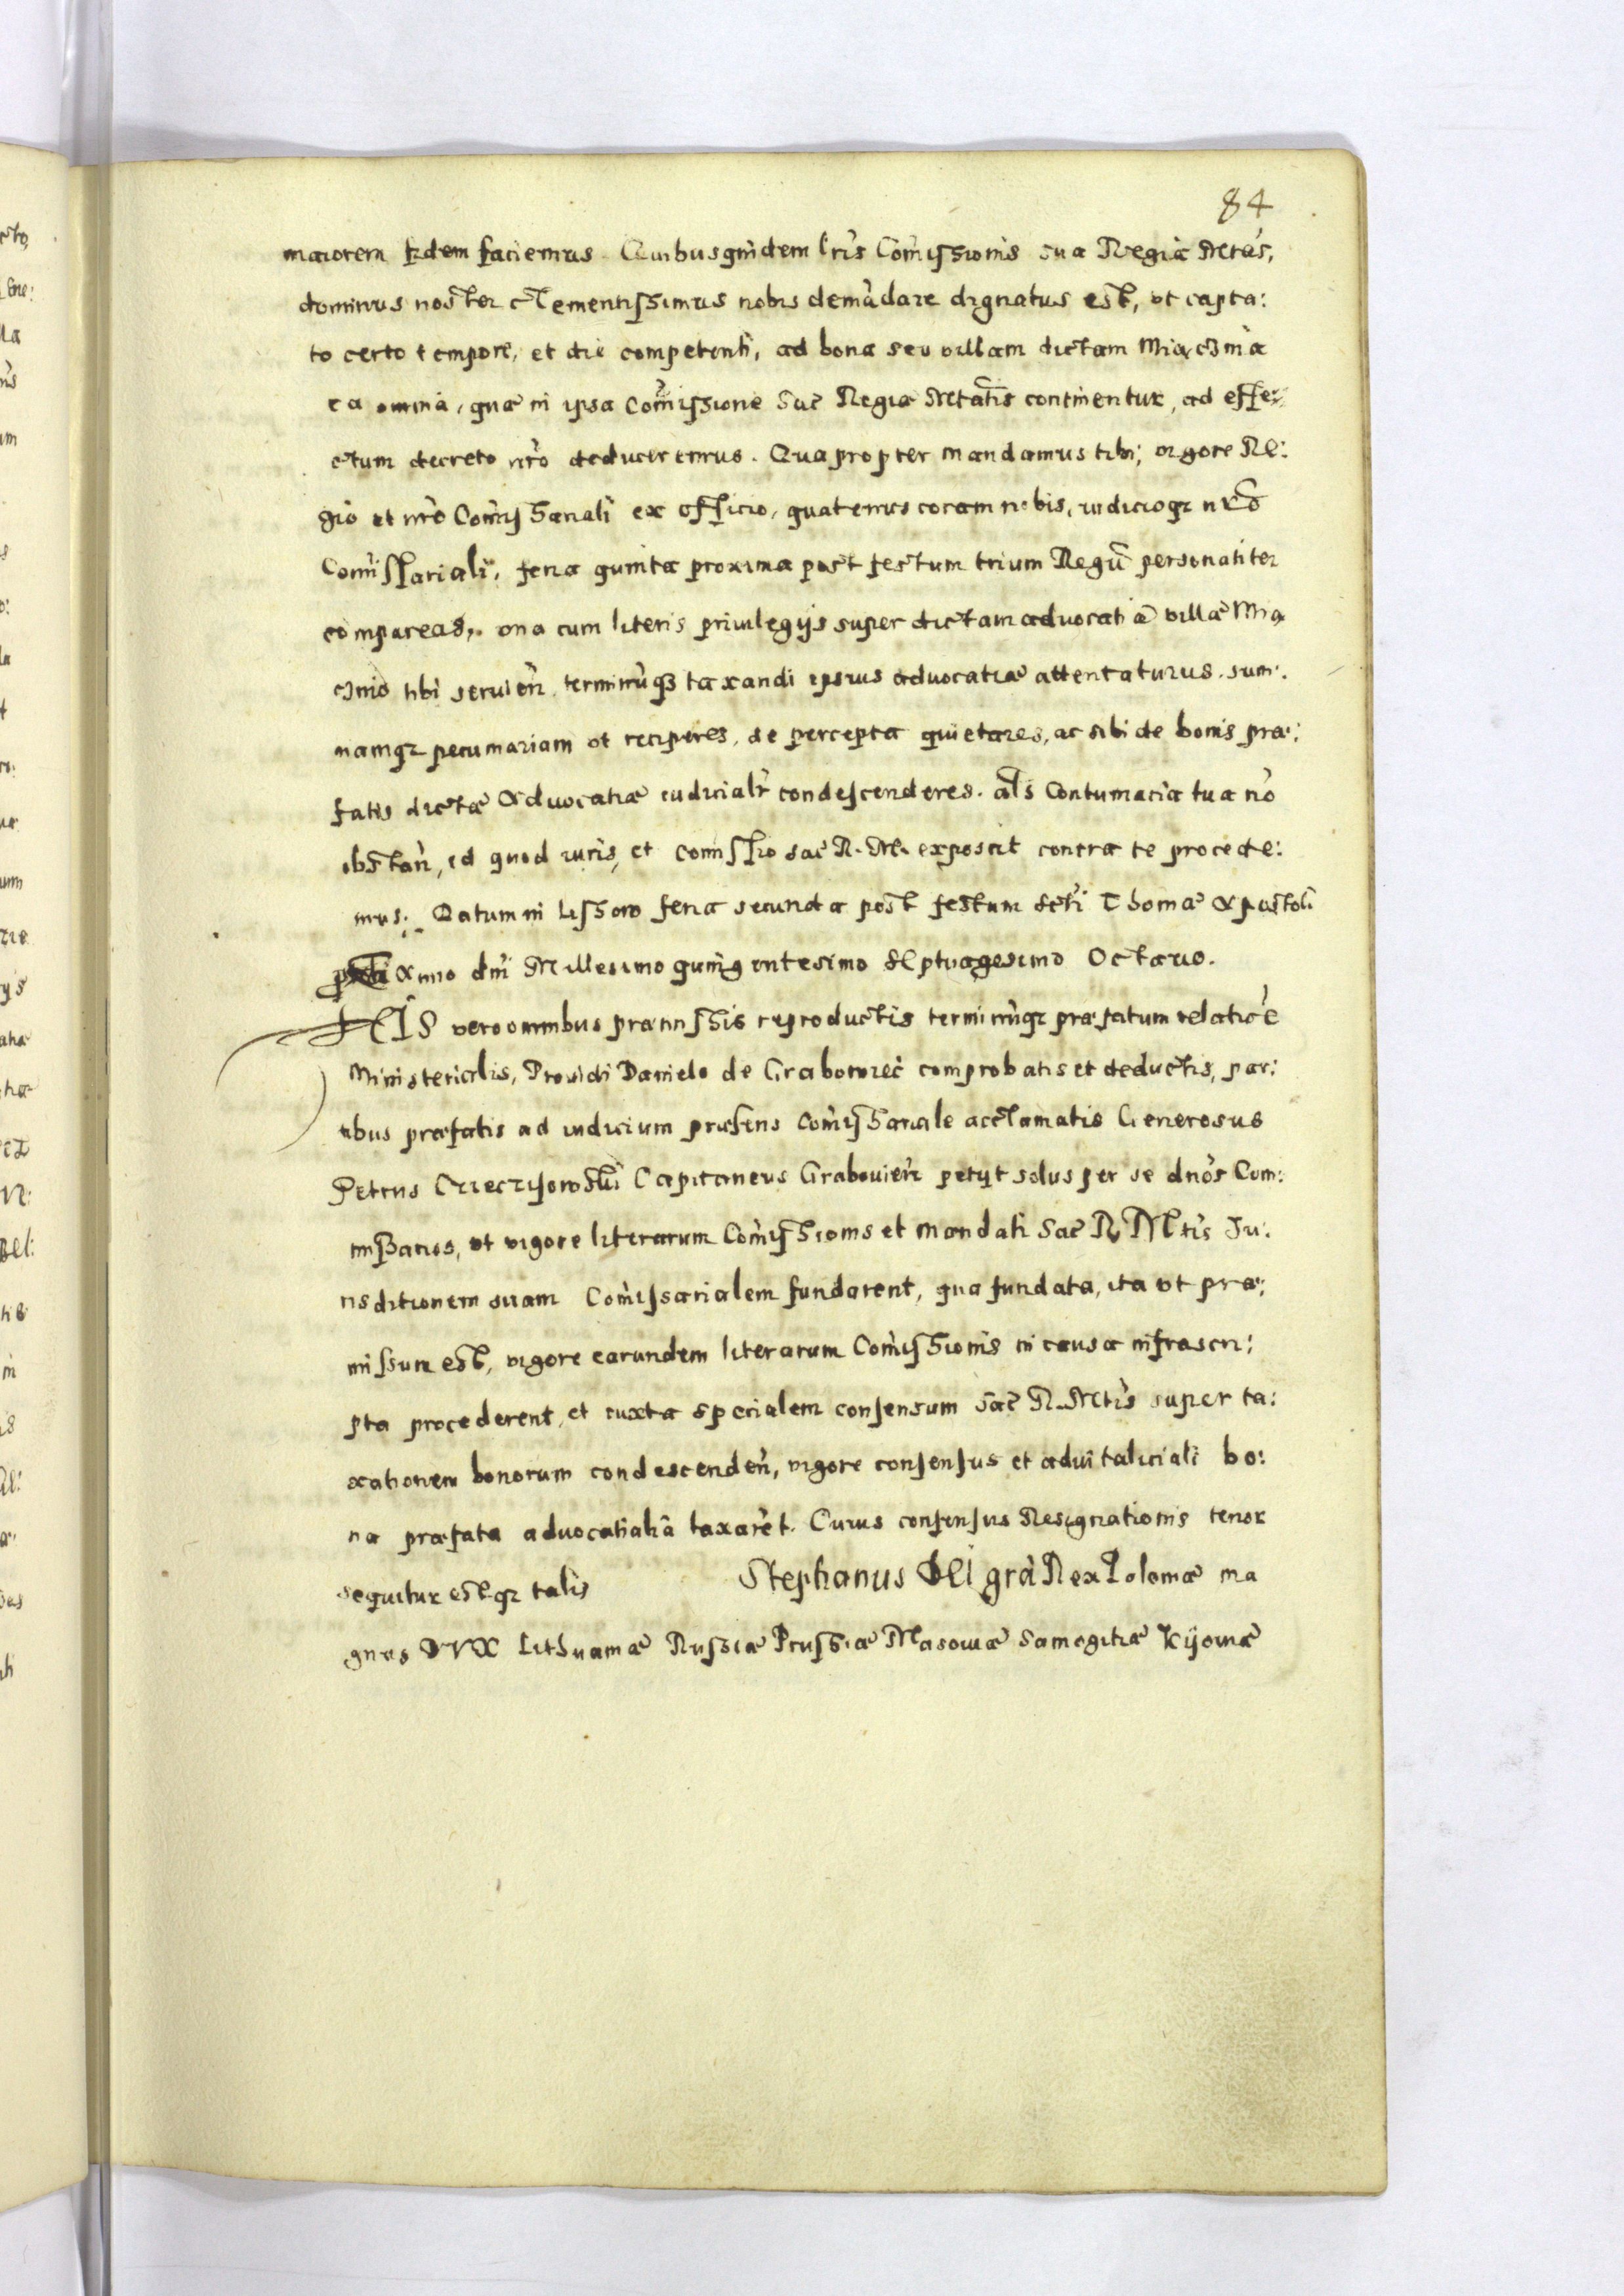 84
maiorem fidem faciemus. Quibusquidem lris Comissionis sua Regia Mtas,
dominus noster clementissimus nobis demadare dignatus est, vt capta:
to certo tempore, et die competenti, ad bona seu villam dictam Miaczmia
ea omnia, quæ in ipsa Comissione Sac Regiæ Mtatis continentur, ad effe:
ctum decreto nro deduceremus. Quapropter mandamus tibi, vigore Re:
gio et nro Comissariali ex officio, quatenus coram nobis, iudicioqz nro
Comissariali, feria quinta proxima post festum trium Regu personaliter
compareas, vna cum literis priuilegijs super dictam aduocatia villæ Mia
czmio tibi seruien terminuqz taxandi ipsius aduocatiæ attentaturus. sum:
namqz pecuniariam vt reciperes, de percepta quietares, ac sibi de bonis præ:
fatis dictæ Aduocatiæ iudicialr condescenderes. als Contumacia tua no
obstan, id quod iuris, et comissio sac R. M. exposcit contra te procede:
mus: Datum in Lissow feria secunda post festum scti Thomæ Apostoli
Anno dni Millesimo quingentesimo Septuagesimo Octauo.
HIS vero omnibus præmissis reproductis terminuqz præfatum relatioe
Ministerialis, Prouidi Daniels de Grabowiec comprobatis et deductis, par:
tibus præfatis ad iudicium præsens Comissariale acclamatis Generosus
Petrus Capitaneus Grabouien petyt solus per se dnos Com:
missarios, vt vigore literarum Comissionis et mandati Sac R Mtis Iu:
risditionem suam Comissarialem fundarent, qua fundata, ita vt præ:
missum est, vigore earundem literarum Comissionis in causa infrascri:
pta procederent, et iuxta specialem consensum Sac R. Mtis super ta:
xationem bonorum condescenden, vigore consensus et aduitaliciali bo:
na præfata aduocatialia taxaret. Cuius consensus Resignationis tenor
sequitur estqz talis Stephanus DEi gra Rex Poloniæ ma
gnus DVX Lithuaniæ Russiæ Prussiæ Masouiæ Samogitiæ Kijouiæ